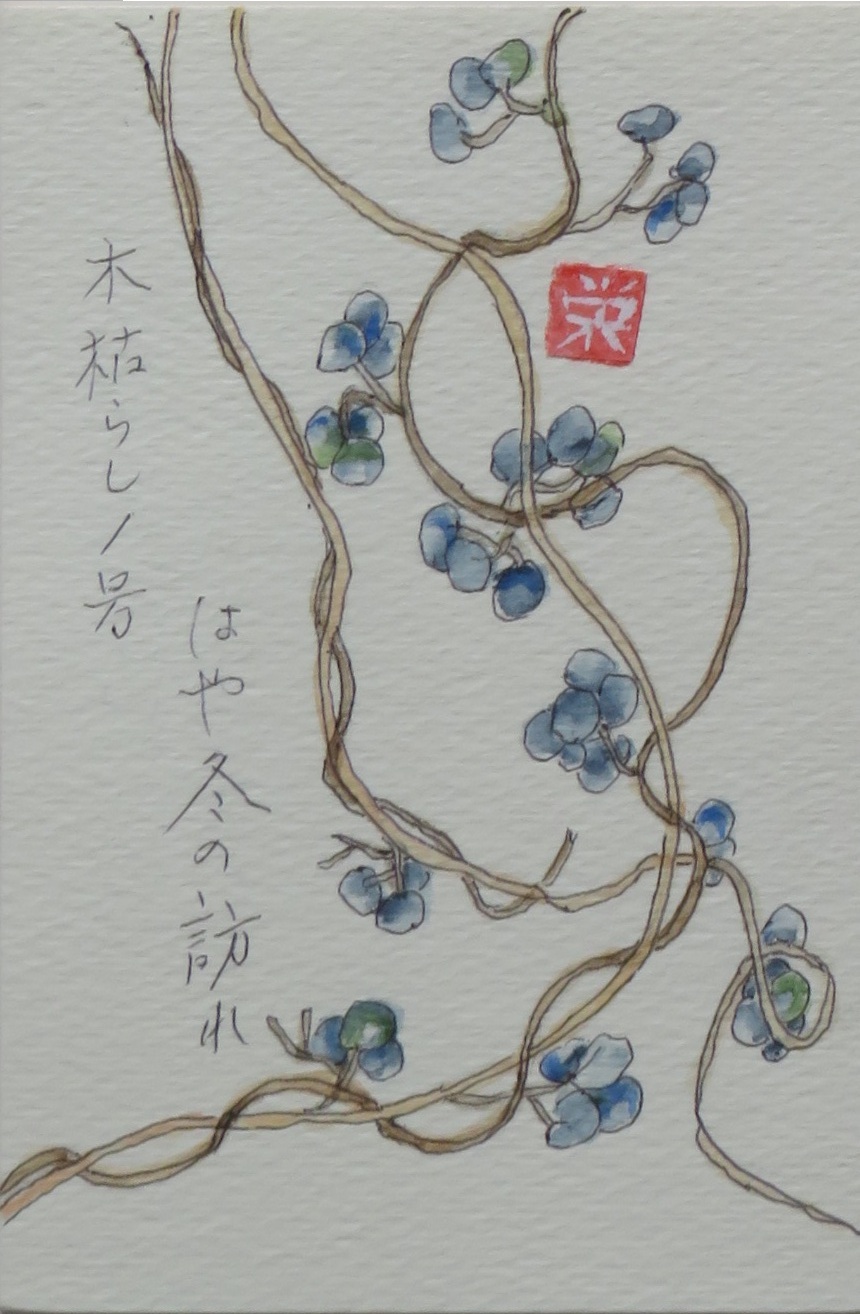 木枯らし1号
はや冬の訪れ
栄